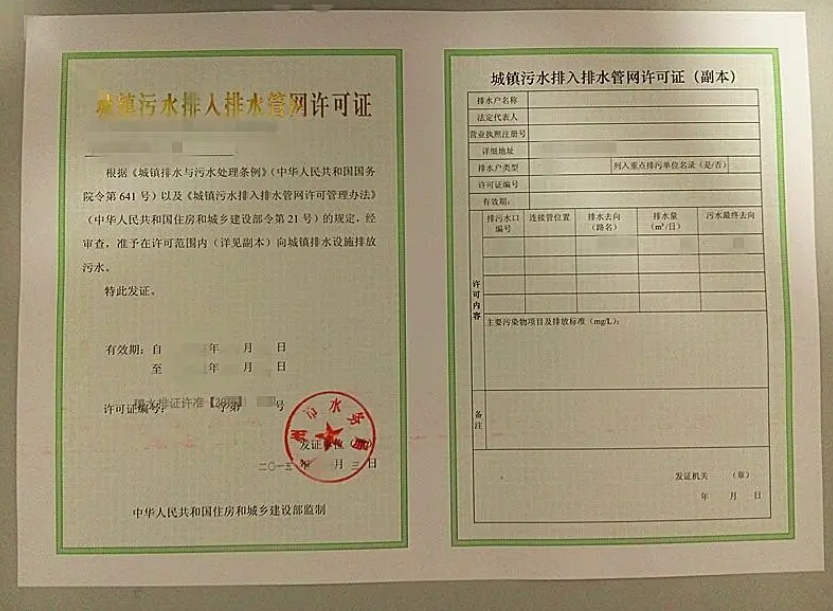 城镇污水排入排水管网许可证
根据《城镇排水与污水处理条例》（中华人民共和国国务
院令第 641 号）以及《城镇污水排入排水管网许可管理办法》
（中华人民共和国住房和城乡建设部令第 21 号）的规定，经
审查，准予在许可范围内（详见副本）向城镇排水设施排放
污水。
特此发证。
有效期：自 年 月 日
至 年 月 日
许可证编号： 字第 号
水排证许准
市水务
发证单位（
二〇一五年 月三日
中华人民共和国住房和城乡建设部监制
城镇污水排入排水管网许可证（副本）
排水户名称
法定代表人
营业执照注册号
详细地址
排水户类型 列入重点排污单位名录（是/否）
许可证编号
有效期：
许可内容
排污水口编号 连接管位置 排水去向（路名） 排水量（m³/日） 污水最终去向
主要污染物项目及排放标准（mg/L）：
备注
发证机关 （章）
年 月 日